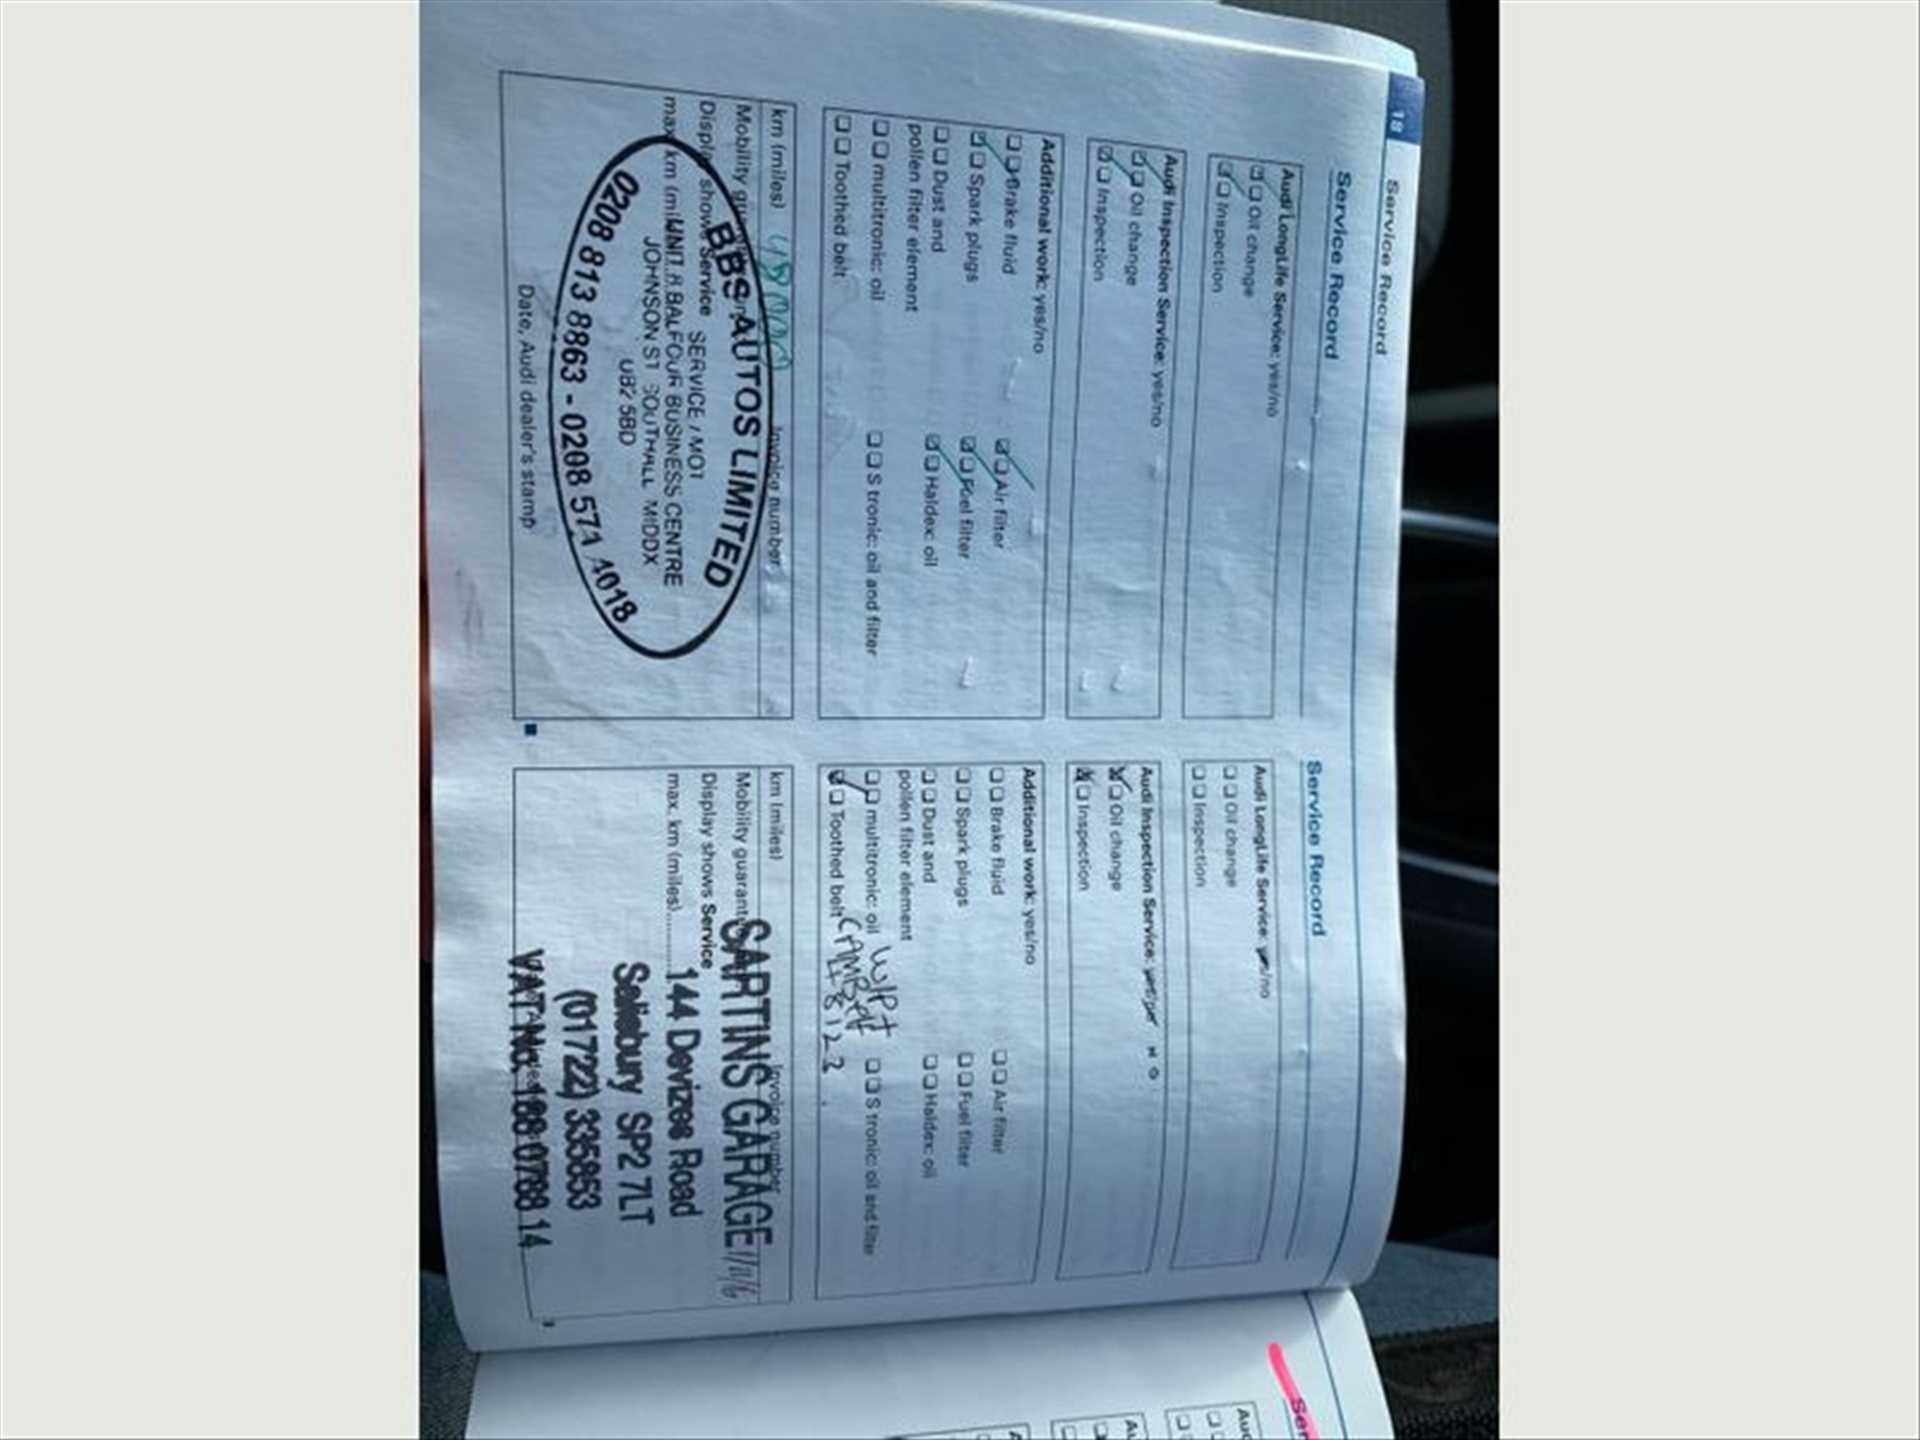 18
Service Record
Service Record
Audi LongLife Service: yes/no
Oil change
Inspection
Audi Inspection Service: yes/no
Oil change
Inspection
Additional work: yes/no
Brake fluid
Air filter
Spark plugs
Fuel filter
Dust and
pollen filter element
Haldex: oil
multitronic: oil
S tronic: oil and filter
Toothed belt
km (miles) 48000
Invoice number
Mobility
Display shows Service
max. km
BBS AUTOS LIMITED
SERVICE / MOT
UNIT 8 BALFOUR BUSINESS CENTRE
JOHNSON ST SOUTHALL MIDDX
UB2 5BD
0208 813 8863 - 0208 571 4018
Date, Audi dealer's stamp
Service Record
Audi LongLife Service: yes/no
Oil change
Inspection
Audi Inspection Service:
Oil change
Inspection
Additional work: yes/no
Brake fluid
Air filter
Spark plugs
Fuel filter
Dust and
pollen filter element
Haldex: oil
multitronic: oil
W/P+
S tronic: oil and filter
Toothed belt
CAMBelt
km (miles)
Invoice number
Mobility
Display shows Service
max. km (miles)
SARTINS GARAGE
144 Devizes Road
Salisbury SP2 7LT
(01722) 335853
VAT No. 188 0788 14
Ser